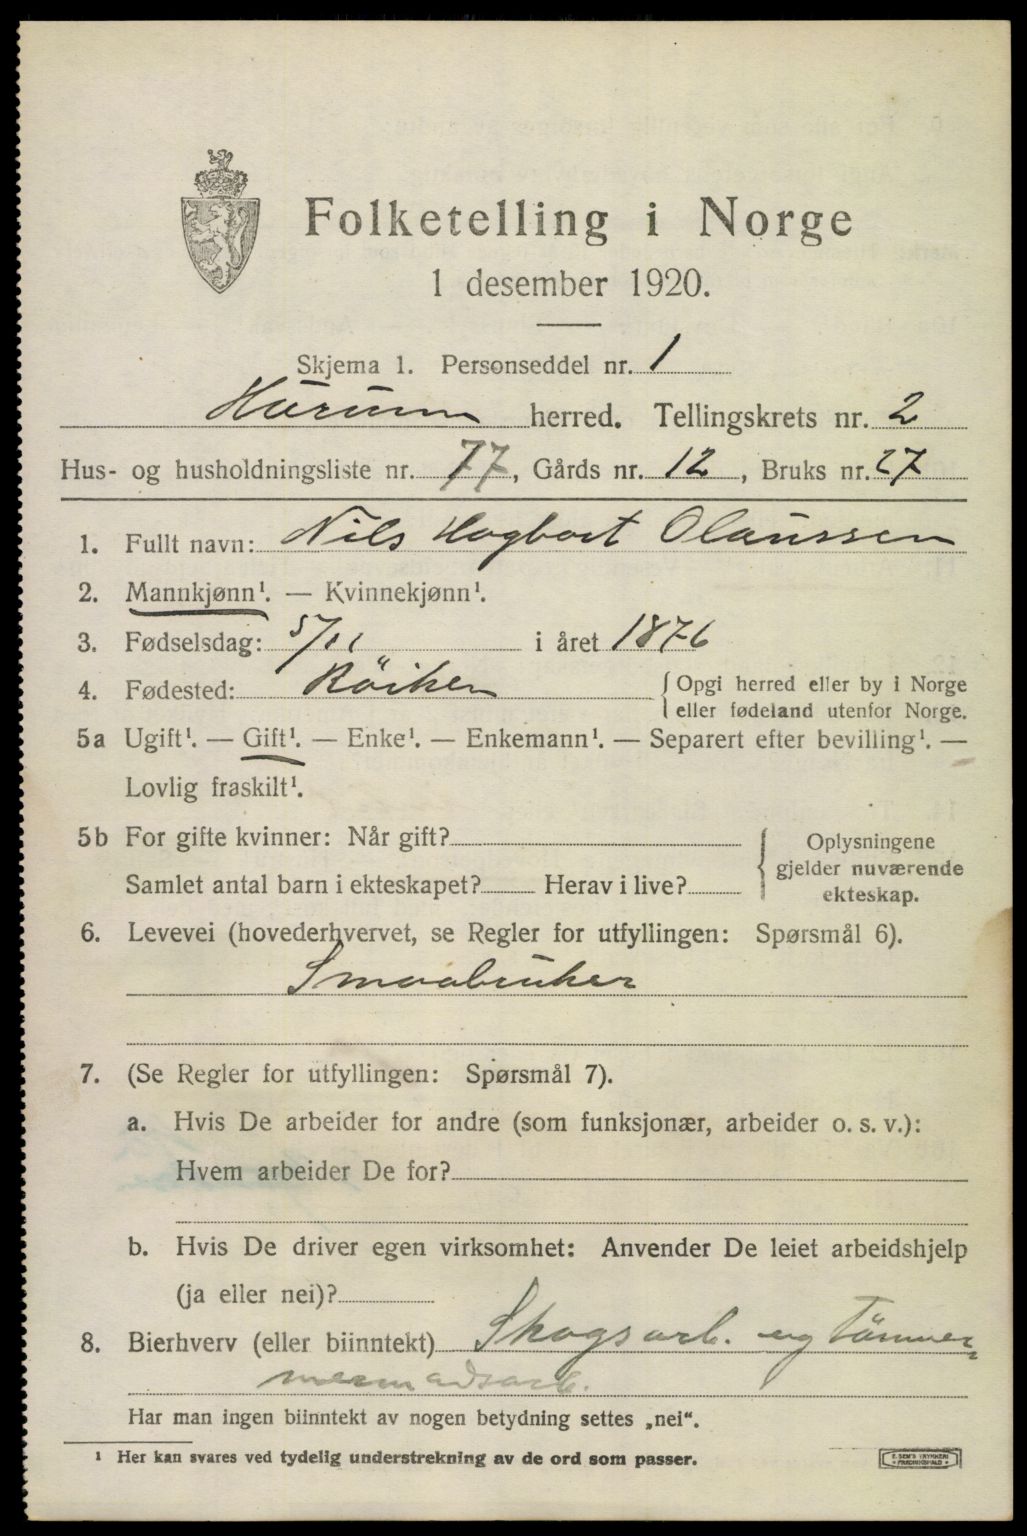 Folketelling i Norge
1 desember 1920.
Skjema 1. Personseddel nr. 1
Hurum herred. Tellingskrets nr. 2
Hus- og husholdningsliste nr. 77, Gårds nr. 12, Bruks nr. 27
1. Fullt navn: Nils Hagbart Olaussen
2. Mannkjønn¹. — Kvinnekjønn¹.
3. Fødselsdag: 5/11 i året 1876
4. Fødested: Röiken { Opgi herred eller by i Norge
eller fødeland utenfor Norge.
5a Ugift¹. — Gift¹. — Enke¹. — Enkemann¹. — Separert efter bevilling¹. —
Lovlig fraskilt¹.
5b For gifte kvinner: Når gift?
Samlet antal barn i ekteskapet? Herav i live?
{ Oplysningene
gjelder nuværende
ekteskap.
6. Levevei (hovederhvervet, se Regler for utfyllingen: Spørsmål 6).
Smaabruker
7. (Se Regler for utfyllingen: Spørsmål 7).
a. Hvis De arbeider for andre (som funksjonær, arbeider o. s. v.):
Hvem arbeider De for?
b. Hvis De driver egen virksomhet: Anvender De leiet arbeidshjelp
(ja eller nei)?
8. Bierhverv (eller biinntekt) Skogsarb. og Tömmer
Har man ingen biinntekt av nogen betydning settes „nei“.
¹ Her kan svares ved tydelig understrekning av de ord som passer.